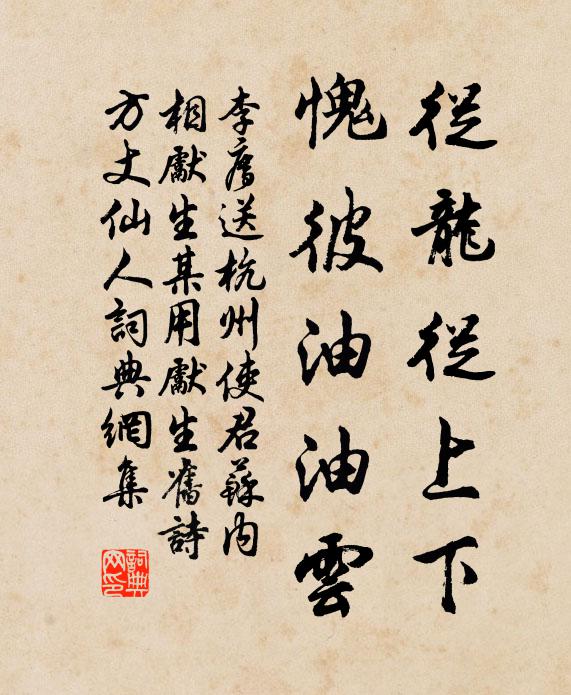 從龍從上下
愧彼油油雲
李廌送杭州使君蘇内
相獻生某用獻生舊詩
方丈仙人詞典網集
詞典網印